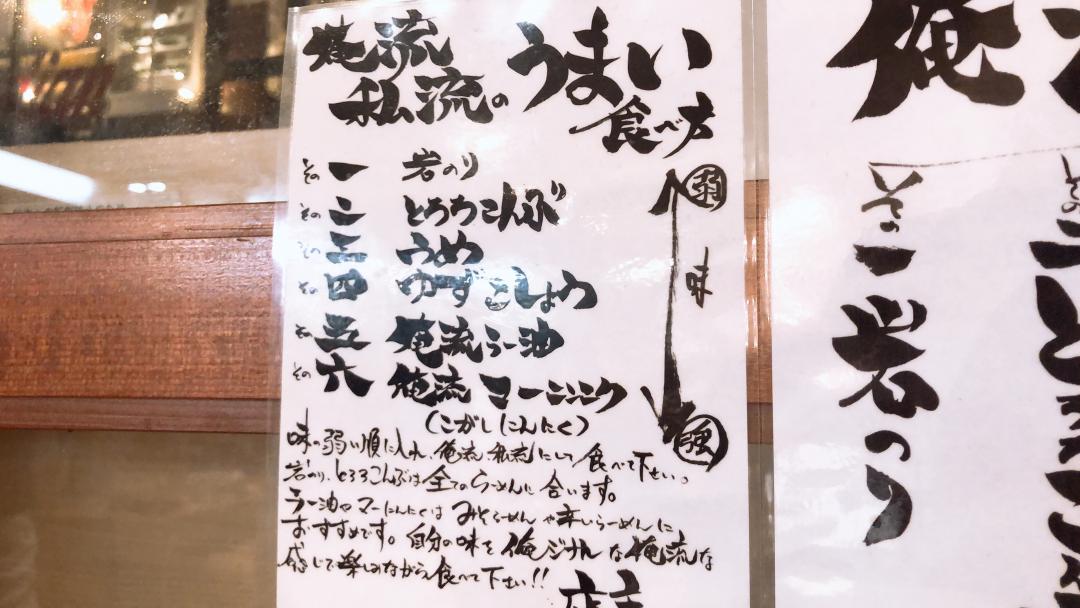 俺流
私流の
うまい
食べ方
その一 岩のり
その二 とろろこんぶ
その三 うめ
その四 ゆずこしょう
その五 俺流ラー油
その六 俺流マーニンニク
(こがしにんにく)
弱
味
強
味の弱い順に入れ、俺流、私流にして食べて下さい。
岩のり、とろろこんぶは全てのらーめんに合います。
ラー油やマーにんにくはみそらーめんや辛いらーめんに
おすすめです。自分の味を俺ジナルな俺流な
感じで楽しみながら食べて下さい!!
店主
俺
その一 岩のり